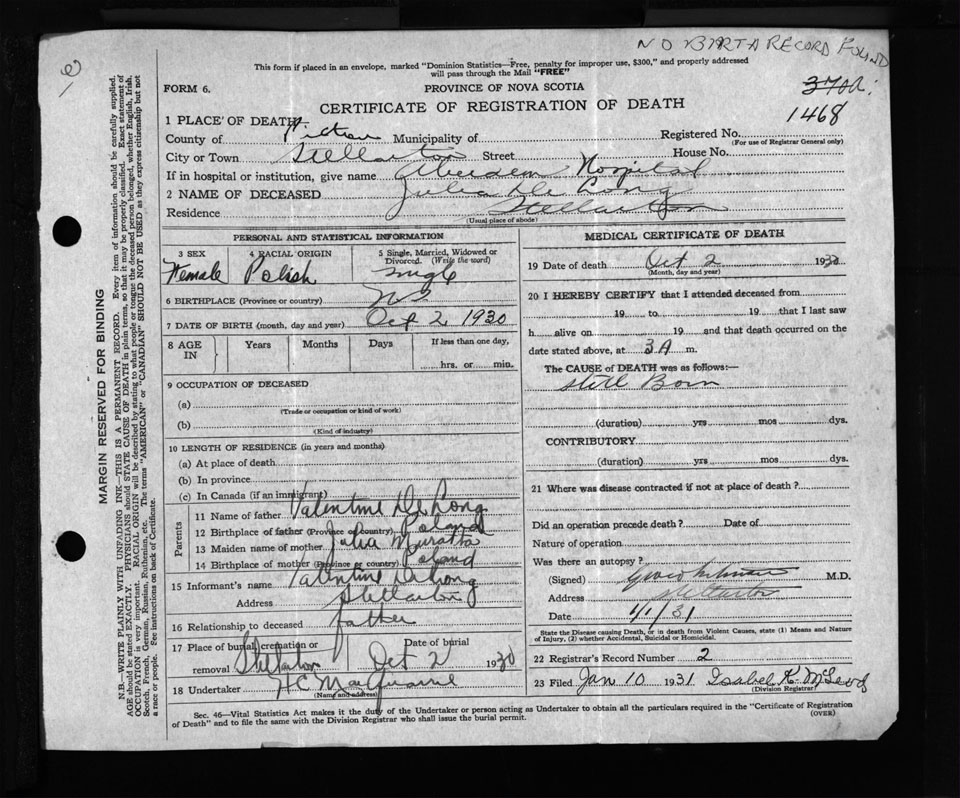 NO BIRTH RECORD FOUND
This form if placed in an envelope, marked "Dominion Statistics—Free, penalty for improper use, $300," and properly addressed
will pass through the Mail "FREE"
FORM 6.
PROVINCE OF NOVA SCOTIA
CERTIFICATE OF REGISTRATION OF DEATH
1468
1 PLACE OF DEATH—
County of Pictou Municipality of Registered No.
(For use of Registrar General only)
City or Town Stellarton Street House No.
If in hospital or institution, give name Aberdeen Hospital
2 NAME OF DECEASED Julia De Long
Residence Stellarton
(Usual place of abode)
PERSONAL AND STATISTICAL INFORMATION
3 SEX 4 RACIAL ORIGIN 5 Single, Married, Widowed or Divorced. (Write the word)
Female Polish single
6 BIRTHPLACE (Province or country) NS
7 DATE OF BIRTH (month, day and year) Oct 2 1930
8 AGE IN Years Months Days If less than one day,
hrs. or min.
9 OCCUPATION OF DECEASED
(a)
(Trade or occupation or kind of work)
(b)
(Kind of industry)
10 LENGTH OF RESIDENCE (in years and months)
(a) At place of death
(b) In province
(c) In Canada (if an immigrant)
Parents
11 Name of father Valentine De Long
12 Birthplace of father (Province or country) Poland
13 Maiden name of mother Julia
14 Birthplace of mother (Province or country) Poland
15 Informant's name Valentine DeLong
Address Stellarton
16 Relationship to deceased father
17 Place of burial, cremation or removal Stellarton Date of burial Oct 2 1930
18 Undertaker H C MacQuarrie
(Name and address)
MEDICAL CERTIFICATE OF DEATH
19 Date of death Oct 2 1930
(Month, day and year)
20 I HEREBY CERTIFY that I attended deceased from
19 to 19 that I last saw
h alive on 19 and that death occurred on
date stated above, at 3 A m.
The CAUSE of DEATH was as follows:—
Still Born
(duration) yrs mos dys.
CONTRIBUTORY
(duration) yrs mos dys.
21 Where was disease contracted if not at place of death?
Did an operation precede death? Date of
Nature of operation
Was there an autopsy?
(Signed) M.D.
Address Stellarton
Date 1/1/31
State the Disease causing Death, or in death from Violent Causes, state (1) Means and Nature
of Injury, (2) whether Accidental, Suicidal or Homicidal.
22 Registrar's Record Number 2
23 Filed Jan 10 1931 Isabel K. McLeod
(Division Registrar)
Sec. 46—Vital Statistics Act makes it the duty of the Undertaker or person acting as Undertaker to obtain all the particulars required in the "Certificate of Registration
of Death" and to file the same with the Division Registrar who shall issue the burial permit.
(OVER)
MARGIN RESERVED FOR BINDING
N.B.—WRITE PLAINLY WITH UNFADING INK—THIS IS A PERMANENT RECORD. Every item of information should be carefully supplied.
AGE should be stated EXACTLY. PHYSICIANS should STATE CAUSE OF DEATH in plain terms, so that it may be properly classified. Exact statement of
OCCUPATION is very important. RACIAL ORIGIN will be described by stating to what people or tongue the deceased person belonged, whether English, Irish,
Scotch, French, German, Russian, Ruthenian, etc. The terms "AMERICAN" or "CANADIAN" SHOULD NOT BE USED as they express citizenship but not
a race or people. See instructions on back of Certificate.